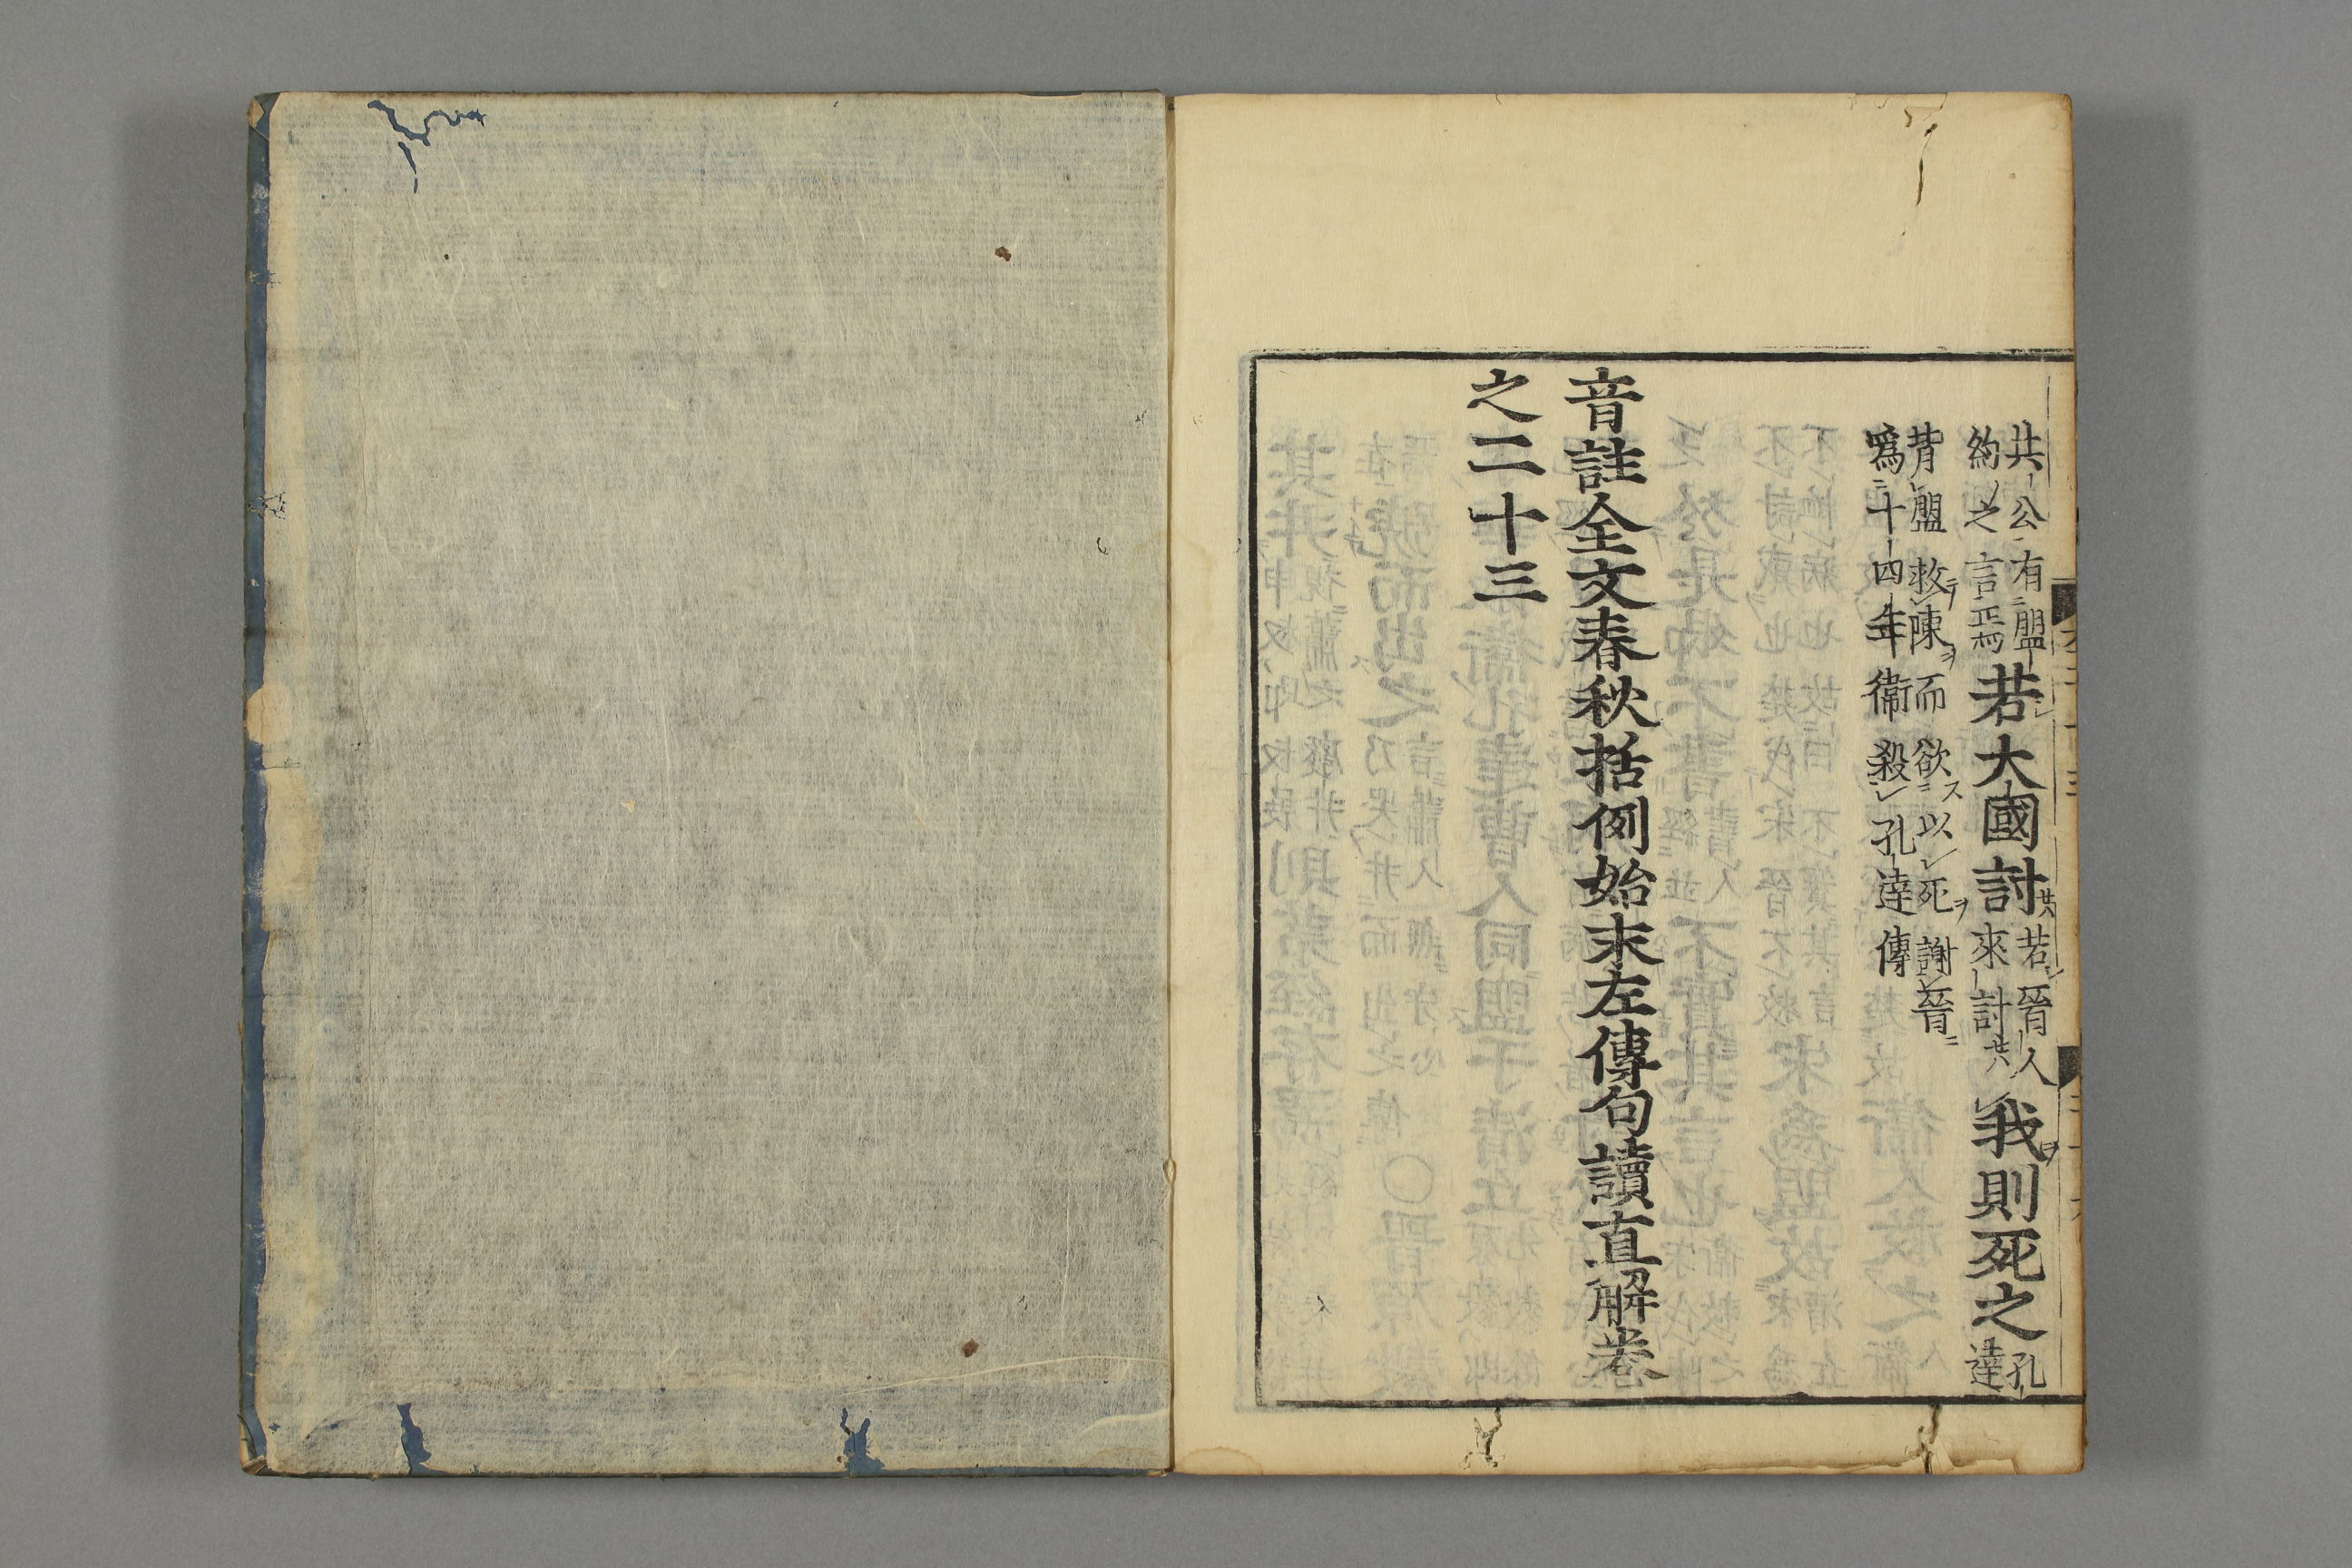 共公有盟
約之言焉
若大國討
若晉人
來討共
我則死之
孔
達
背盟救陳而欲以死謝晉
爲十四年衞殺孔達傳
音註全文春秋括例始末左傳句讀直解卷
之二十三